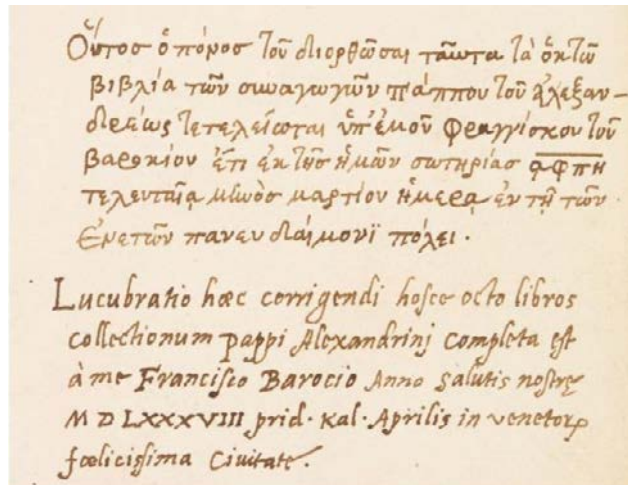 Οὗτος ὁ πόνος τοῦ διορθῶσαι ταῦτα τὰ ὀκτὼ
βιβλία τῶν συναγωγῶν πάππου τοῦ ἀλεξαν-
δρέως τετελείωται ὑπ' ἐμοῦ φραγγίσκου τοῦ
βαροκίου ἔτει ἐκ τῆς ἡμῶν σωτηρίας ͵αφπη
τελευταίᾳ μηνὸς μαρτίου ἡμέρᾳ ἐν τῇ τῶν
Ἐνετῶν πανευδαίμονϊ πόλει.
Lucubratio hæc corrigendi hosce octo libros
collectionum Pappi Alexandrinj completa est
à me Francisco Barocio Anno salutis nostrę
M D LXXXVIII prid. Kal. Aprilis in venetoꝝ
fœlicissima Ciuitate.